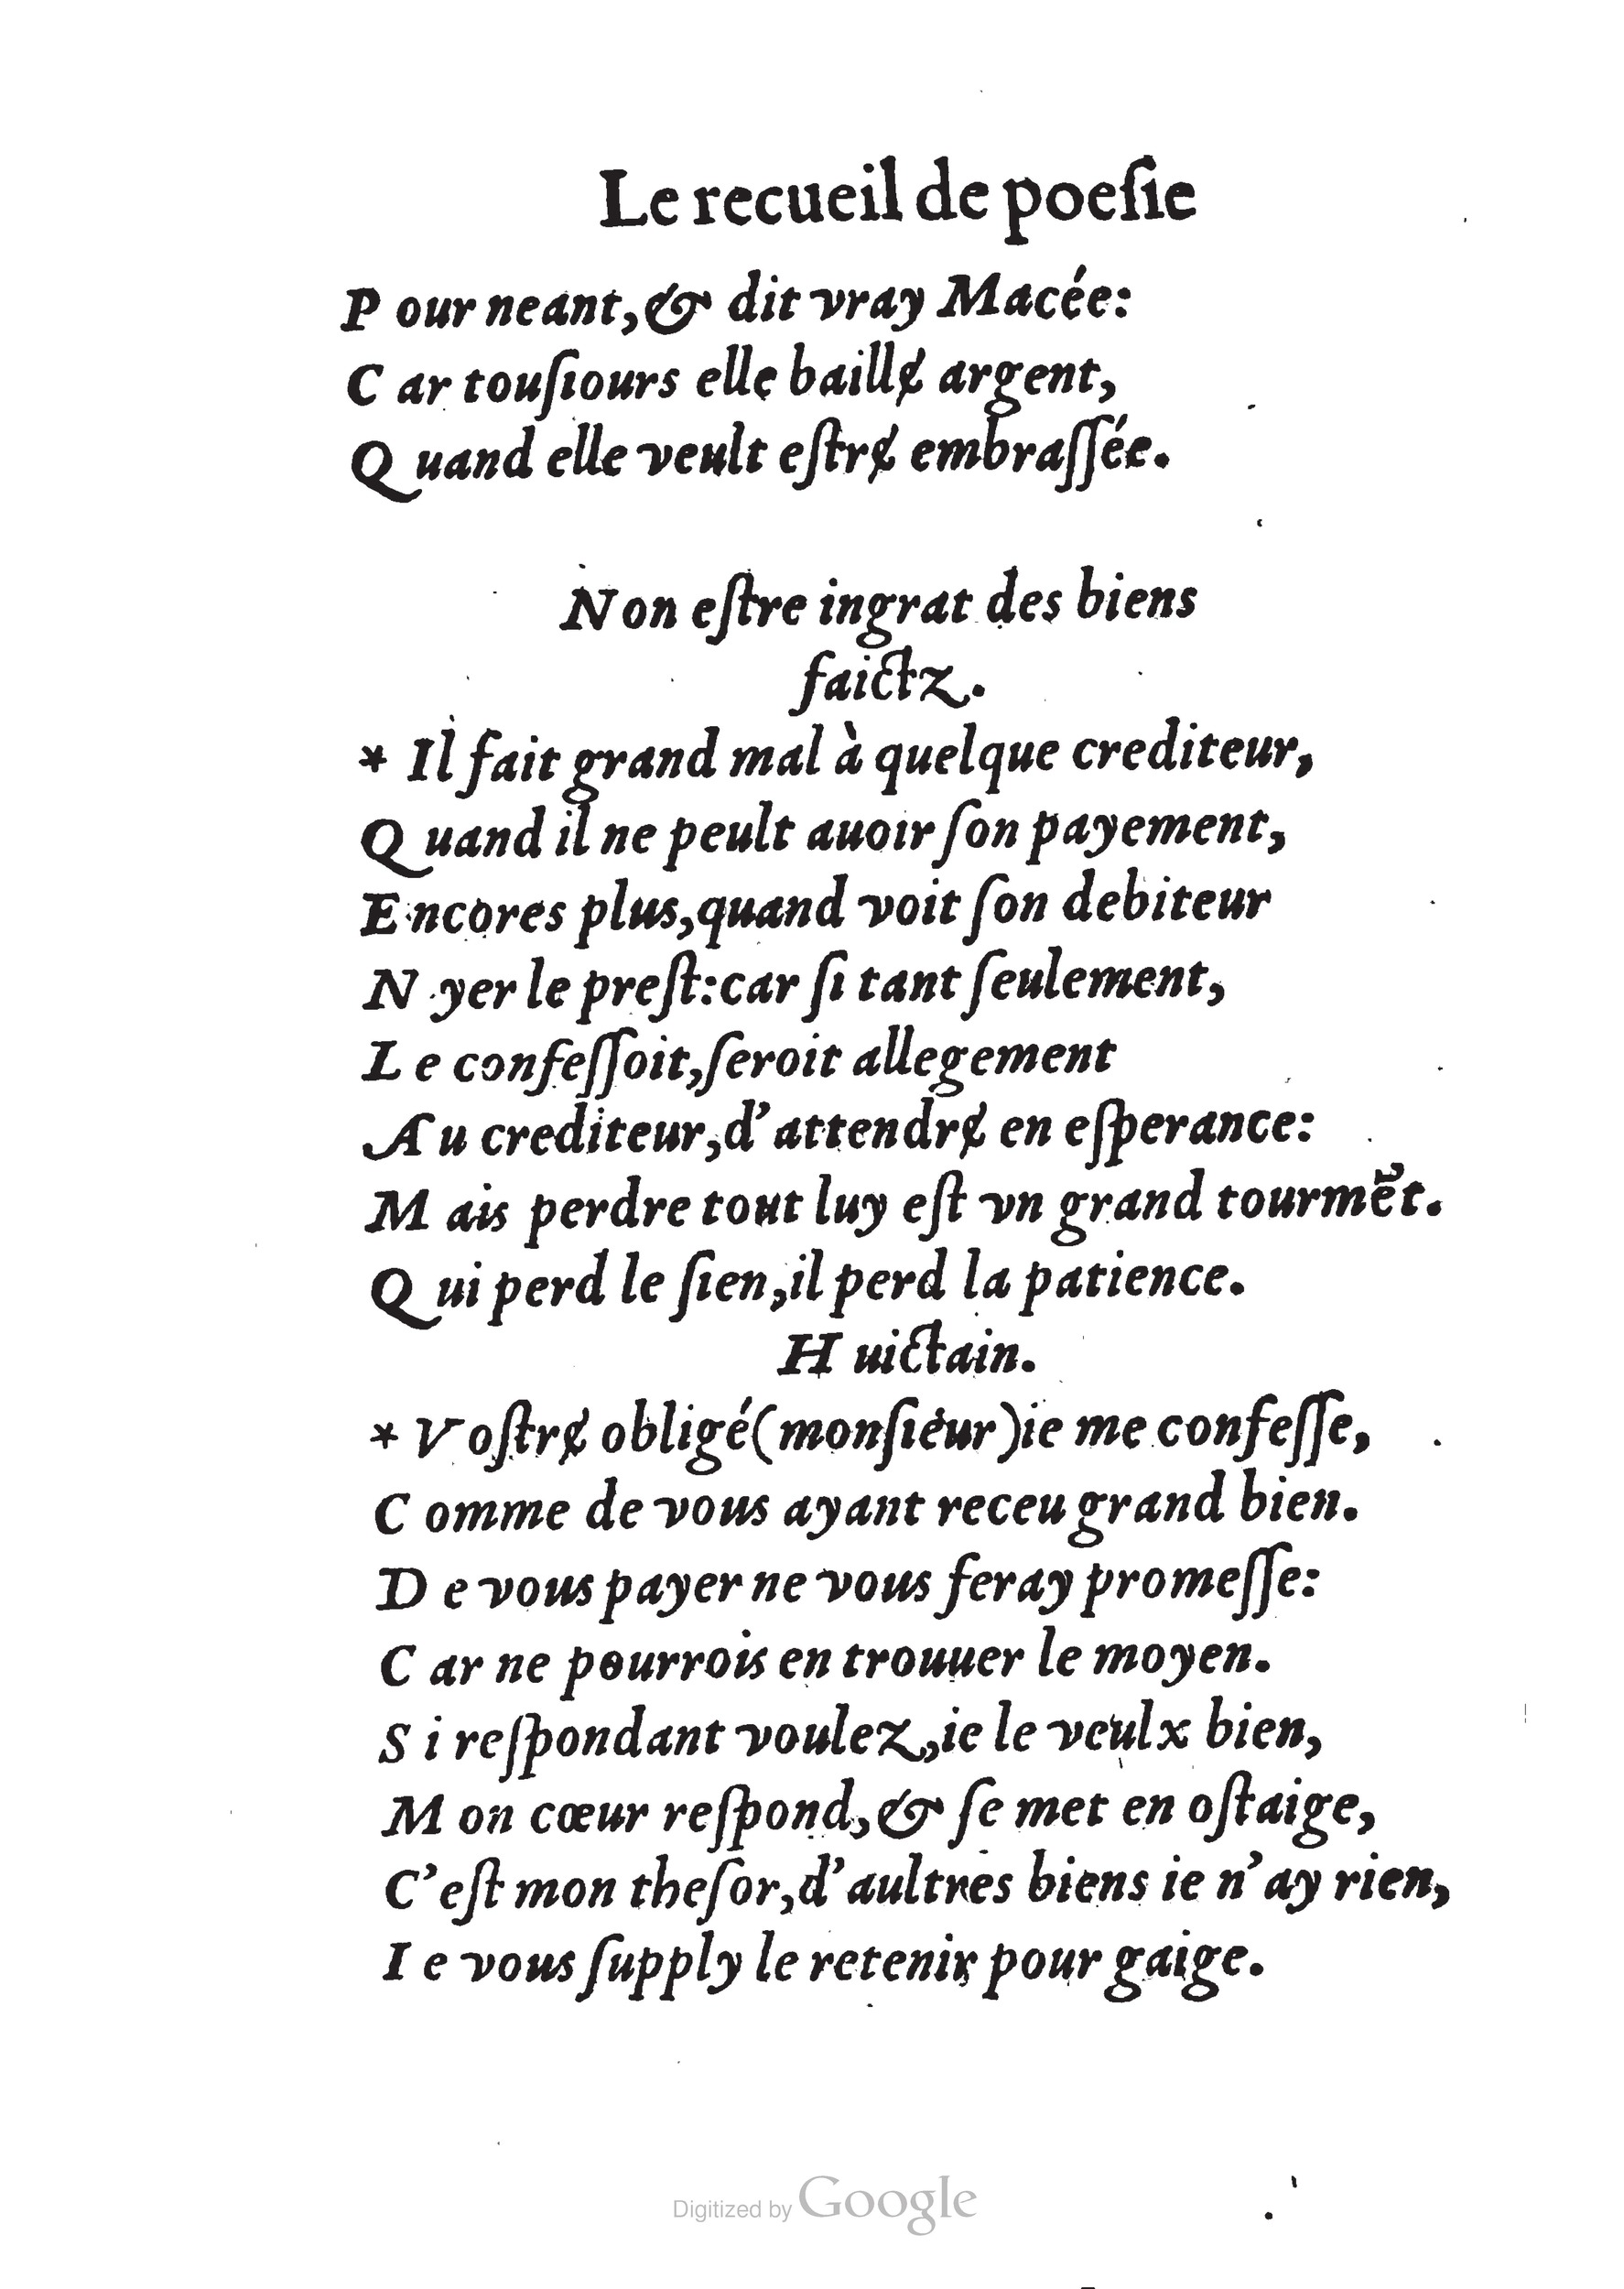 Le recueil de poeſie
P our neant, & dit vray Macée:
C ar touſiours elle baillɇ argent,
Q uand elle veult eſtrɇ embraſſée.
Non eſtre ingrat des biens
faictz.
* Il fait grand mal à quelque crediteur,
Q uand il ne peult auoir ſon payement,
E ncores plus, quand voit ſon debiteur
N yer le preſt: car ſi tant ſeulement,
L e confeſſoit, ſeroit allegement
A u crediteur, d'attendrɇ en eſperance:
M ais perdre tout luy eſt vn grand tourmẽt.
Q ui perd le ſien, il perd la patience.
H uictain.
* V oſtrɇ obligé (monſieur) ie me confeſſe,
C omme de vous ayant receu grand bien.
D e vous payer ne vous feray promeſſe:
C ar ne pourrois en trouuer le moyen.
S i reſpondant voulez, ie le veulx bien,
M on cœur reſpond, & ſe met en oſtaige,
C'eſt mon theſor, d'aultres biens ie n'ay rien,
I e vous ſupply le retenir pour gaige.
Digitized by Google